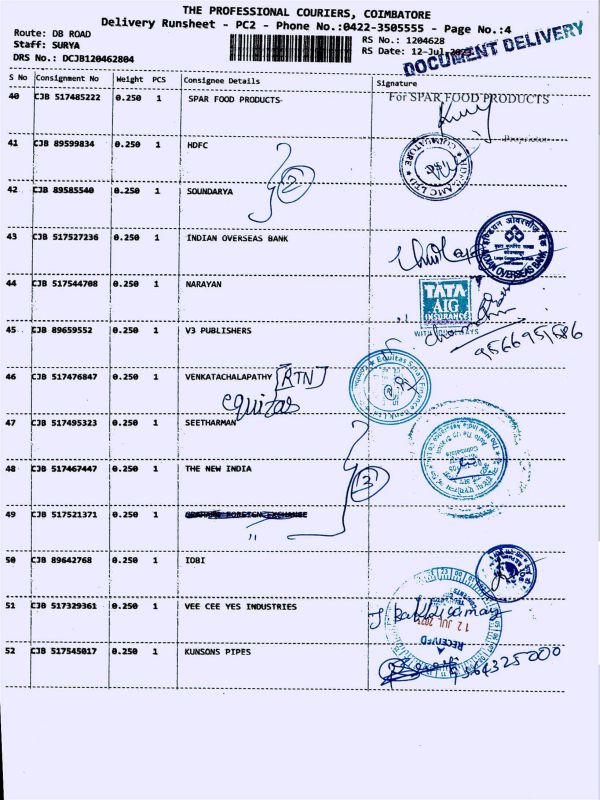 THE PROFESSIONAL COURIERS, COIMBATORE
Delivery Runsheet - PC2 - Phone No.:0422-3505555 - Page No.:4
Route: DB ROAD
Staff: SURYA
DRS No.: DCJB120462804
RS No.: 1204628
RS Date: 12-Jul-2023
DOCUMENT DELIVERY
S No Consignment No Weight PCS Consignee Details Signature
40 CJB 517485222 0.250 1 SPAR FOOD PRODUCTS
For SPAR FOOD PRODUCTS
Proprietor
41 CJB 89599834 0.250 1 HDFC
42 CJB 89585540 0.250 1 SOUNDARYA
2
43 CJB 517527236 0.250 1 INDIAN OVERSEAS BANK
INDIAN OVERSEAS BANK
44 CJB 517544708 0.250 1 NARAYAN
TATA
AIG
INSURANCE
WITH YOU ALWAYS
9566951586
45 CJB 89659552 0.250 1 V3 PUBLISHERS
46 CJB 517476847 0.250 1 VENKATACHALAPATHY [RTN]
equitas
Equitas Small Finance Bank Ltd
47 CJB 517495323 0.250 1 SEETHARMAN
48 CJB 517467447 0.250 1 THE NEW INDIA
3
The New India Assurance Co. Ltd.
49 CJB 517521371 0.250 1 FOREIGN EXCHANGE
50 CJB 89642768 0.250 1 IDBI
51 CJB 517329361 0.250 1 VEE CEE YES INDUSTRIES
12 JUL 2023
RECEIVED
52 CJB 517545017 0.250 1 KUNSONS PIPES
9364325000